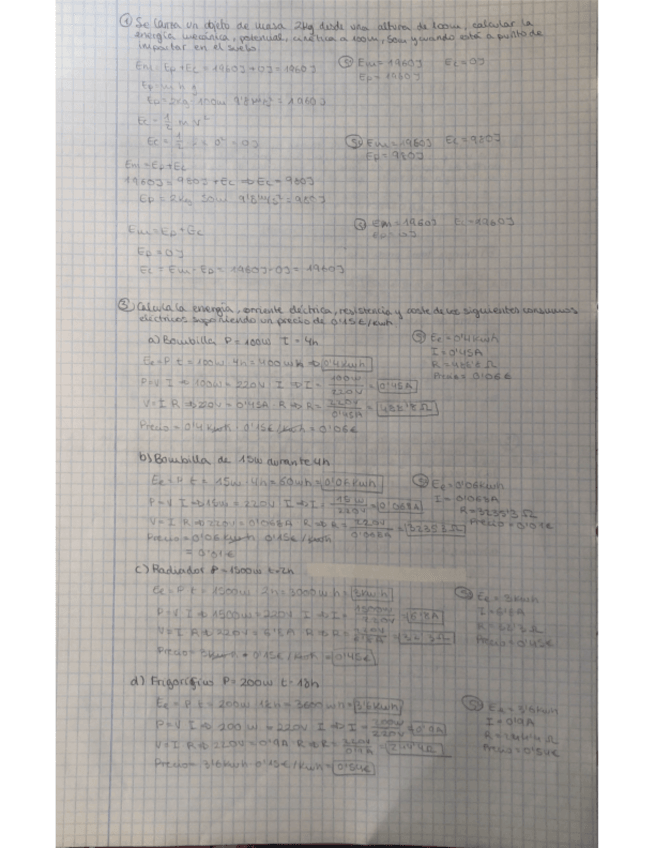 ① Se lanza un objeto de masa 2kg desde una altura de 100m, calcular la
energía mecánica, potencial, cinética a 100m, 50m y cuando está a punto de
impactar en el suelo.
Em = Ep + Ec = 1960J + 0J = 1960J
Ⓢ Em = 1960J Ec = 0J
Ep = 1960J
Ep = m h g
Ep = 2kg 100m 9'8m/s² = 1960J
Ec = 1/2 m v²
Ec = 1/2 0² = 0J
Ⓢ Em = 1960J Ec = 980J
Ep = 980J
Em = Ep + Ec
1960J = 980J + Ec ⇒ Ec = 980J
Ep = 2kg 50m 9'8m/s² = 980J
Ⓢ Em = 1960J Ec = 1960J
Ep = 0J
Em = Ep + Ec
Ep = 0J
Ec = Em - Ep = 1960J - 0J = 1960J
Calcula la energía, corriente eléctrica, resistencia y coste de los siguientes consumos
eléctricos suponiendo un precio de 0'15€/kwh
a) Bombilla P = 100w t = 4h
Ee = P t = 100w 4h = 400wh ⇒ 0'4kwh
P = V I ⇒ 100w = 220V I ⇒ I = 100w/220V = 0'45A
V = I R ⇒ 220V = 0'45A R ⇒ R = 220V/0'45A = 488'8Ω
Precio = 0'4kwh 0'15€/kwh = 0'06€
Ⓢ Ee = 0'4kwh
I = 0'45A
R = 488'8Ω
Precio = 0'06€
b) Bombilla de 15w durante 4h
Ee = P t = 15w · 4h = 60wh = 0'06kwh
P = V I ⇒ 15w = 220V I ⇒ I = 15w/220V = 0'068A
V = I R ⇒ 220V = 0'068A R ⇒ R = 220V/0'068A = 3235'3Ω
Precio = 0'06kwh 0'15€/kwh
= 0'01€
Ⓢ Ee = 0'06kwh
I = 0'068A
R = 3235'3Ω
Precio = 0'01€
c) Radiador P = 1500w t = 2h
Ee = P t = 1500w 2h = 3000wh = 3kwh
P = V I ⇒ 1500w = 220V I ⇒ I = 1500w/220V = 6'8A
V = I R ⇒ 220V = 6'8A R ⇒ R = 220V/6'8A = 32'3Ω
Precio = 3kwh · 0'15€/kwh = 0'45€
Ⓢ Ee = 3kwh
I = 6'8A
R = 32'3Ω
Precio = 0'45€
d) Frigorífico P = 200w t = 18h
Ee = P t = 200w 18h = 3600wh = 3'6kwh
P = V I ⇒ 200w = 220V I ⇒ I = 200w/220V = 0'9A
V = I R ⇒ 220V = 0'9A R ⇒ R = 220V/0'9A = 244'4Ω
Precio = 3'6kwh 0'15€/kwh = 0'54€
Ⓢ Ee = 3'6kwh
I = 0'9A
R = 244'4Ω
Precio = 0'54€